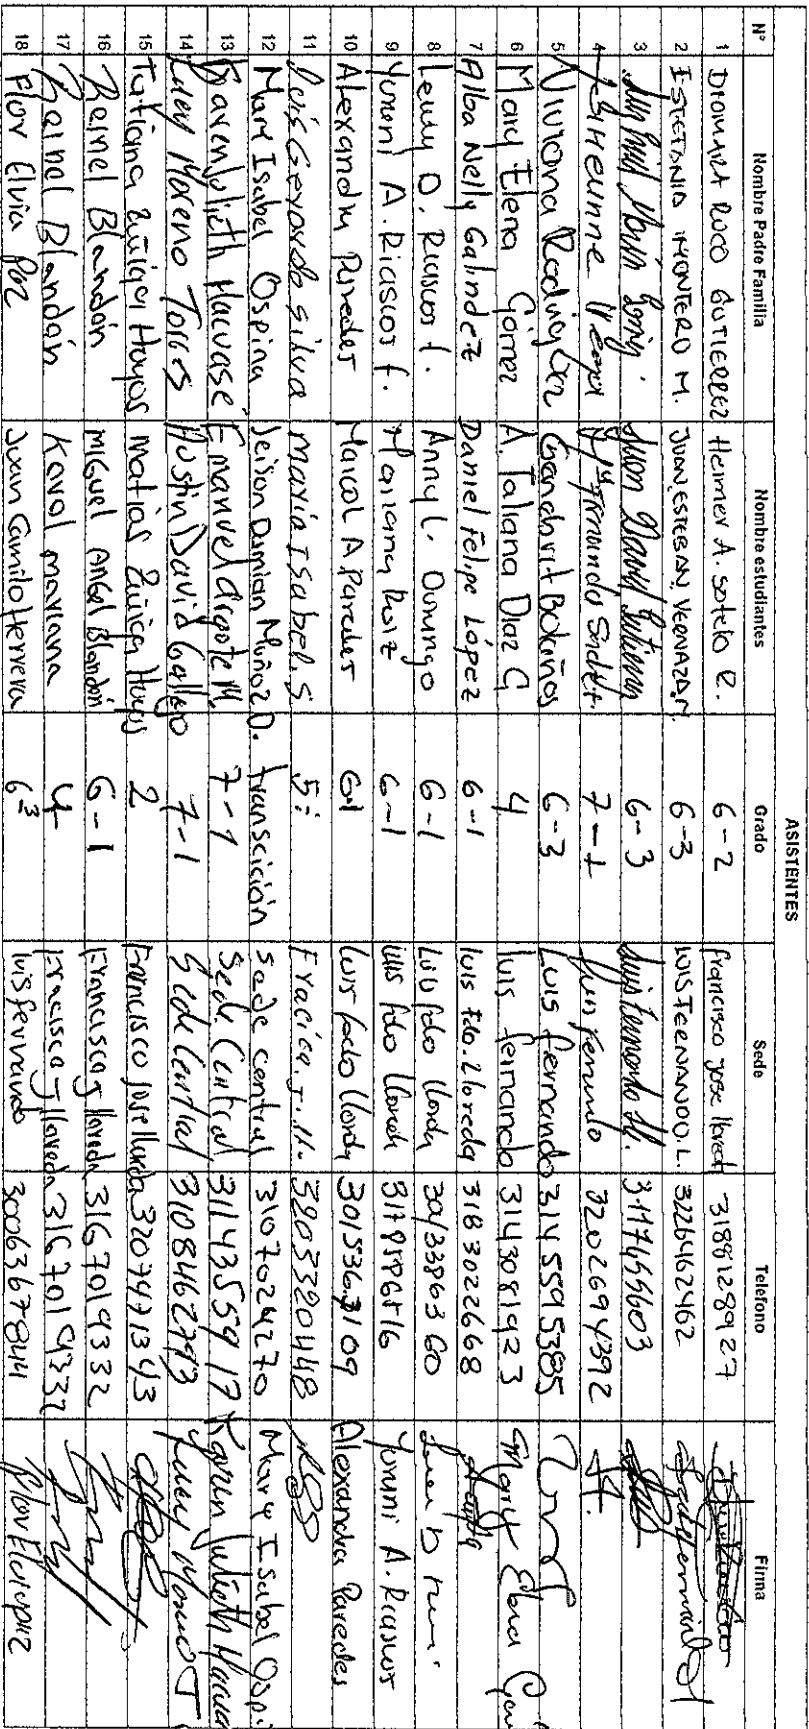 ASISTENTES
N° Nombre Padre Familia Nombre estudiantes Grado Sede Telefono Firma
1 DIOMARA ROCO GUTIERREZ Heimer A. Sotelo R. 6-2 francisco jose llored 3188128927
2 ESTEFANIA MONTERO M. JUAN ESTEBAN VERNAZA M. 6-3 LUIS FERNANDO L. 3226462462
3 Juan David Gutierrez 6-3 Luis Fernando Ll. 3117455603
4 Fernando 7-1 Luis Fernando 3202694392
5 Viviana Rodriguez Bolaños 6-3 Luis Fernando 3145595385
6 Mary Elena Gómez A. Taliana Diaz G 4 luis fernando 3143081923 Mary Elena
7 Alba Nelly Galindez Daniel Felipe López 6-1 luis fdo. lloreda 3183022668
8 Leidy D. Riascos f. Anny L. Domingo 6-1 Luis fdo lloreda 3043386360
9 Yurani A. Riascos f. Mariana Ruiz 6-1 luis fdo lloreda 3178586516 Yurani A. Riascos
10 Alexandra Paredes Maicol A Paredes 6-1 Luis fdo lloreda 3015363109 Alexandra Paredes
11 Luis Gerardo silva Maria Isabel. S 5: 3205320448
12 Mary Isabel Ospina Jeison Damian Muñoz D. transcición sede central 3107024270 Mary Isabel Ospi
13 Karen Julieth Macuase Emanuel Argote M. 7-1 Sede Central 3143555917 Karen Julieth Macua
14 Lucy Moreno Torres Austin David Gallego 7-1 Sede Central 3108462793 Lucy Moreno T
15 Tatiana Zuñiga Hoyos Matias Zuñiga Hoyos 2 Francisco jose lloreda 3207471343
16 Reinel Blandón Miguel Angel Blandón 6-1 Francisco J lloreda 3167019332
17 Reinel Blandón Karol mariana 4 Francisco J lloreda 3167019332
18 Flor Elvia Paz Juan Camilo Herrera 6-3 luis fernando 3006367844 Flor Elvia paz